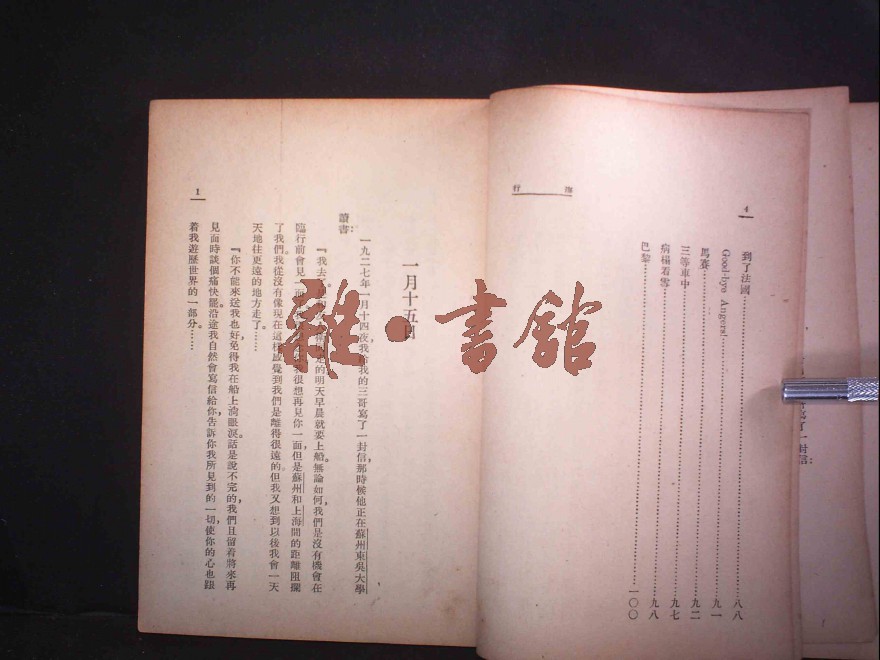 海行
4
到了法國……八八
Good-bye Angers!……九一
馬賽……九二
三等車中……九七
病榻看雪……九八
巴黎……一〇〇
一月十五日
一九二七年一月十四夜,我給我的三哥寫了一封信,那時候他正在蘇州東吳大學
讀書:
『我去了,
的明天早晨就要上船。無論如何,我們是沒有機會在
臨行前會見一面
我很想再見你一面,但是蘇州和上海間的距離阻攔
了我們。我從沒有像現在這樣感覺到我們是離得很遠的。但我又想到以後我會一天
天地往更遠的地方走了……
『你不能來送我也好,免得我在船上淌眼淚。話是說不完的,我們且留着將來再
見面時談個痛快罷。沿途我自然會寫信給你,告訴你我所見到的一切,使你的心也跟
着我遊歷世界的一部分。……
1
雜·書館
寫了一封信: